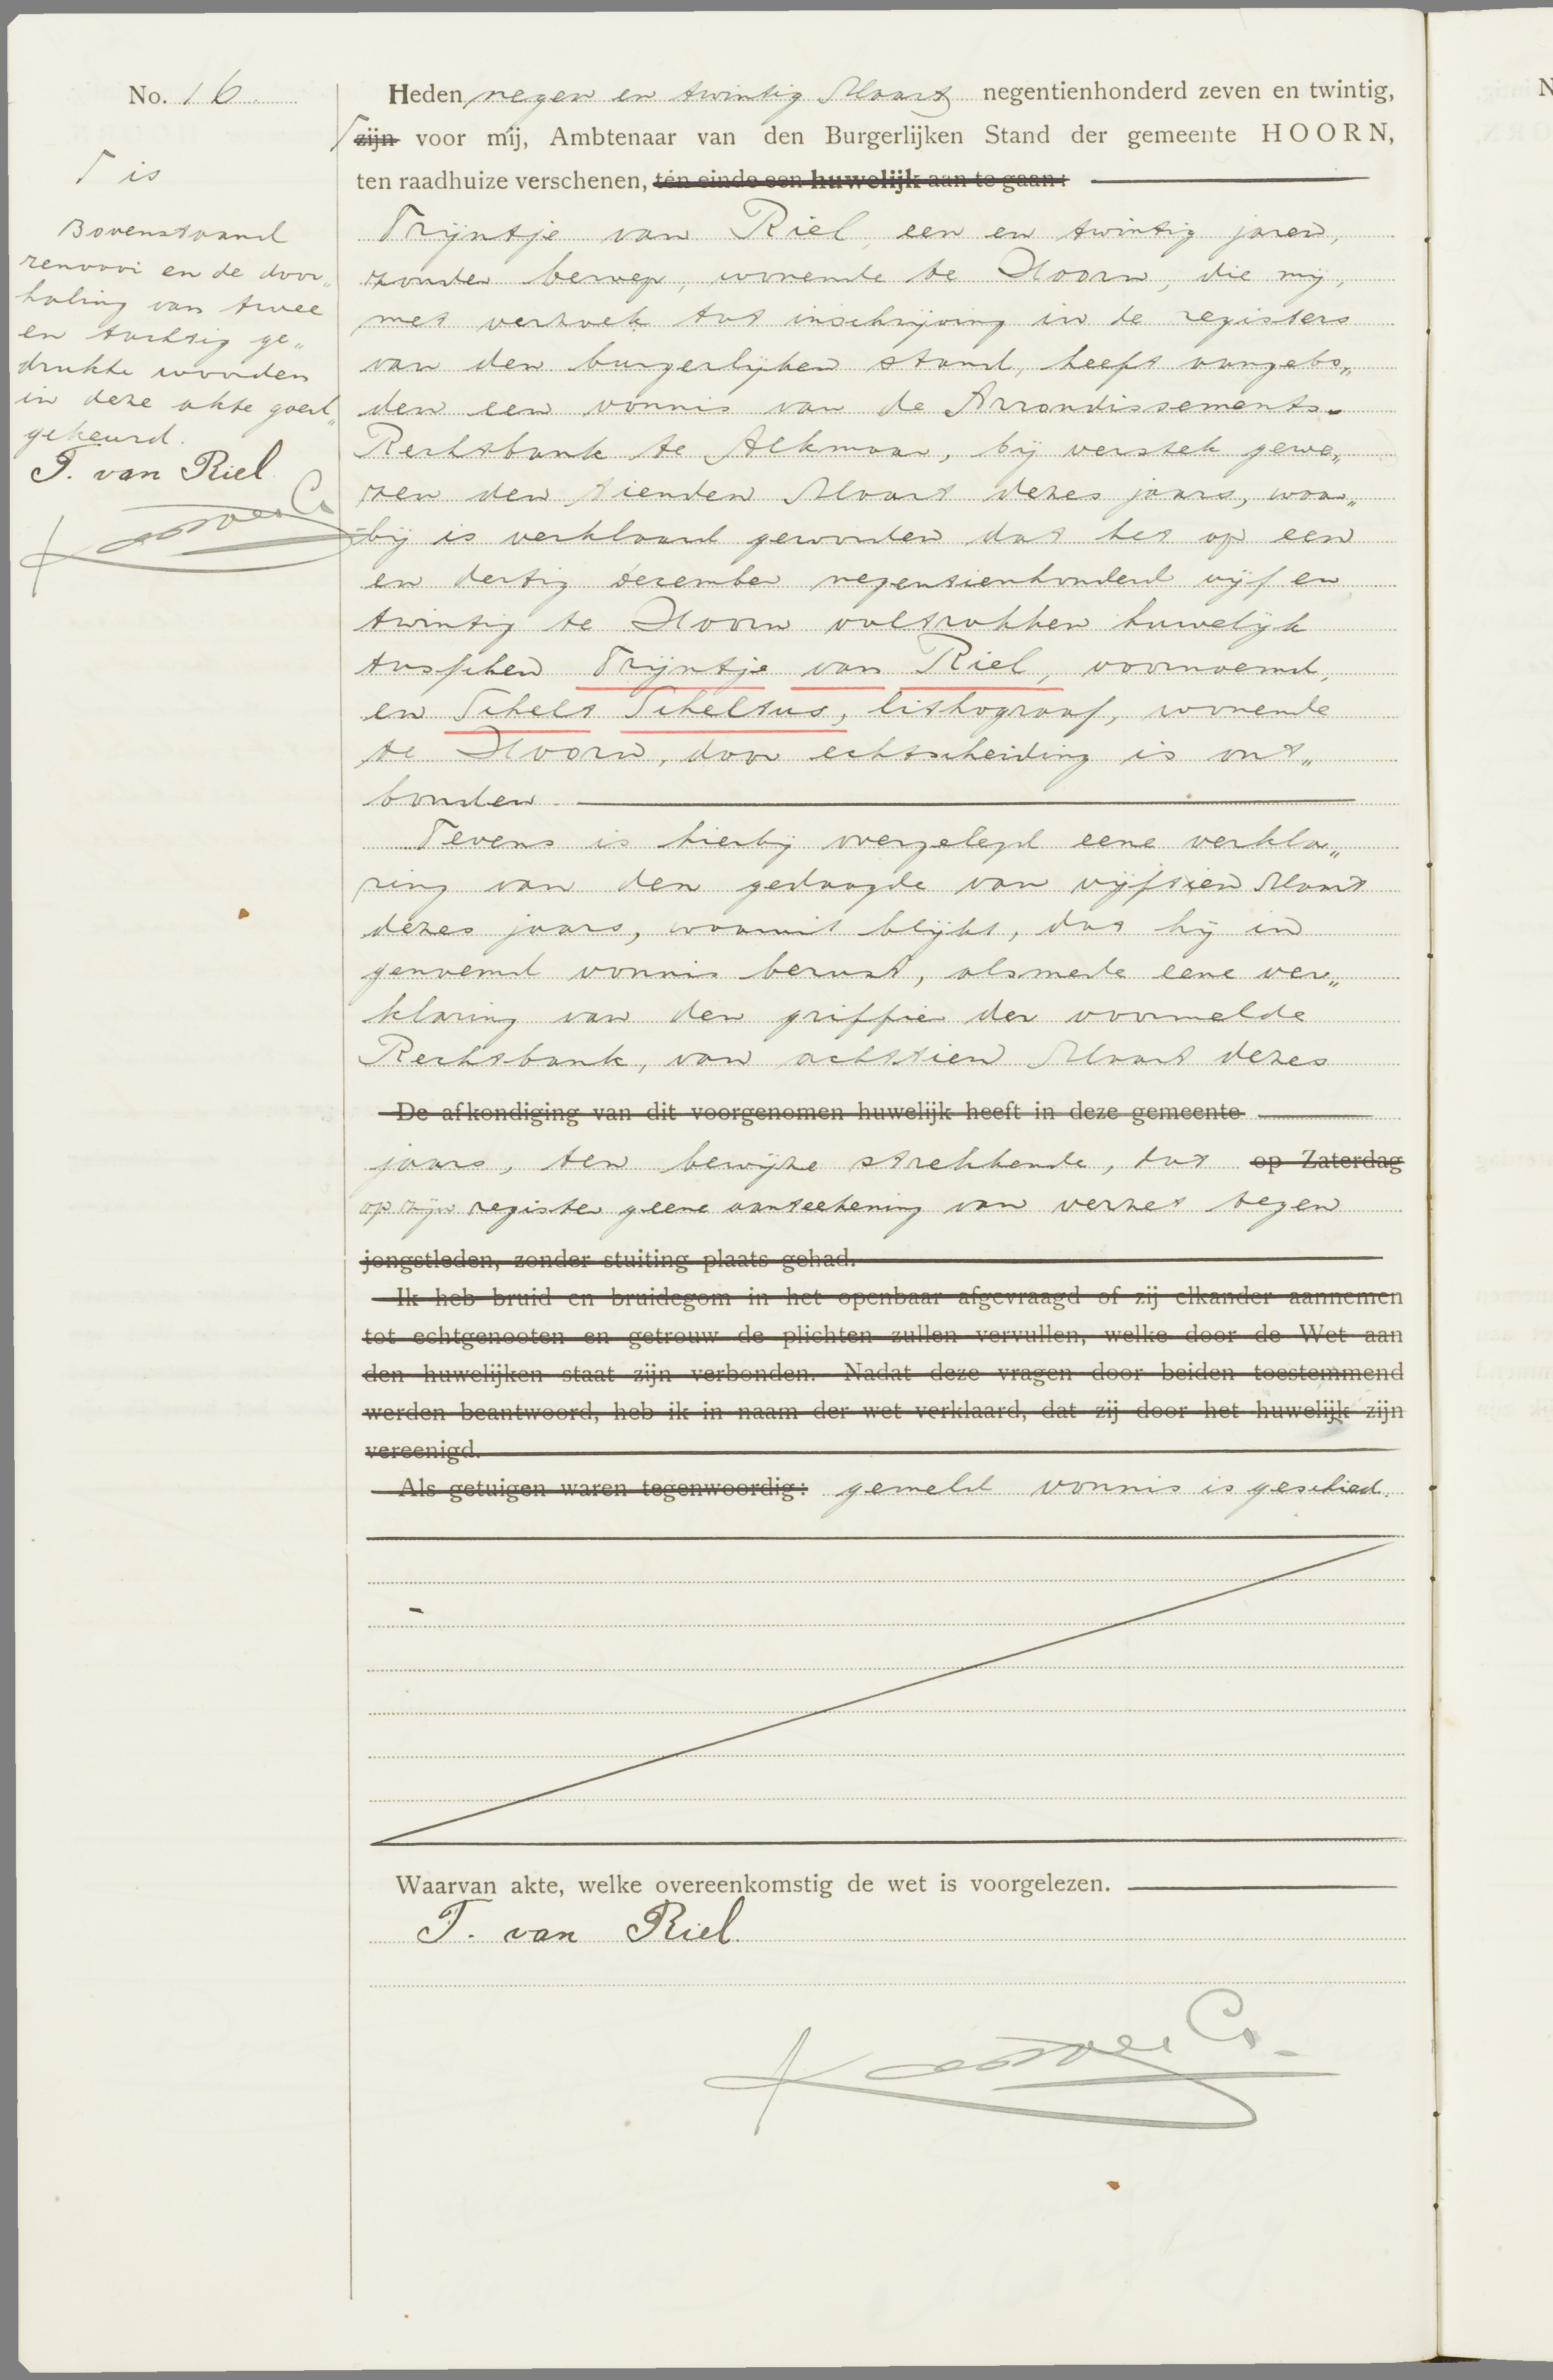 No. 16
Γ is
Bovenstaand
renvooi en de door„
haling van twee
en tachtig ge„
drukte woorden
in deze akte goed„
gekeurd.
T. van Riel
Heden negen en twintig Maart negentienhonderd zeven en twintig,
Γ zijn voor mij, Ambtenaar van den Burgerlijken Stand der gemeente HOORN,
ten raadhuize verschenen, ten einde een huwelijk aan te gaan:
Trijntje van Riel, een en twintig jaren,
zonder beroep, wonende te Hoorn, die mij,
met verzoek tot inschrijving in de registers
van den burgerlijken stand, heeft aangebo„
den een vonnis van de Arrondissements-
Rechtbank te Alkmaar, bij verstek gewe„
zen den tienden Maart dezes jaars, waar„
bij is verklaard geworden dat het op een
en dertig december negentienhonderd vijf en
twintig te Hoorn voltrokken huwelijk
tusschen Trijntje van Riel, voornoemd,
en Schelt Scheltus, lithograaf, wonende
te Hoorn, door echtscheiding is ont„
bonden
Tevens is hierbij overgelegd eene verkla„
ring van den gedaagde van vijftien Maart
dezes jaars, waaruit blijkt, dat hij in
genoemd vonnis berust, alsmede eene ver„
klaring van den griffier der voormelde
Rechtbank, van achttien Maart dezes
De afkondiging van dit voorgenomen huwelijk heeft in deze gemeente
jaars, ten bewijze strekkende, dat op Zaterdag
op zijn register geene aanteekening van verzet tegen
jongstleden, zonder stuiting plaats gehad.
Ik heb bruid en bruidegom in het openbaar afgevraagd of zij elkander aannemen
tot echtgenooten en getrouw de plichten zullen vervullen, welke door de Wet aan
den huwelijken staat zijn verbonden. Nadat deze vragen door beiden toestemmend
werden beantwoord, heb ik in naam der wet verklaard, dat zij door het huwelijk zijn
vereenigd.
Als getuigen waren tegenwoordig: gemeld vonnis is geschied.
Waarvan akte, welke overeenkomstig de wet is voorgelezen.
T. van Riel